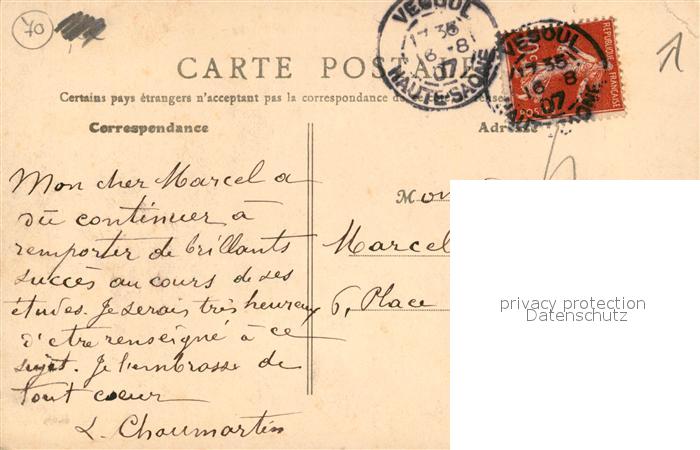 70
VESOUL
17 35
16 - 8
07
HAUTE-SAONE
VESOUL
17 35
16 - 8
07
HAUTE-SAONE
REPUBLIQUE FRANÇAISE
10c
POSTES
CARTE POSTALE
Certains pays étrangers n'acceptant pas la correspondance de
Correspondance
Adresse
Mon cher Marcel a
dû continuer à
remporter de brillants
succès au cours de ses
études. Je serais très heureux
d'etre renseigné à ce
sujet. Je l'embrasse de
tout coeur
L. Chaumartin
Mon
Marcel
6, Place
privacy protection
Datenschutz